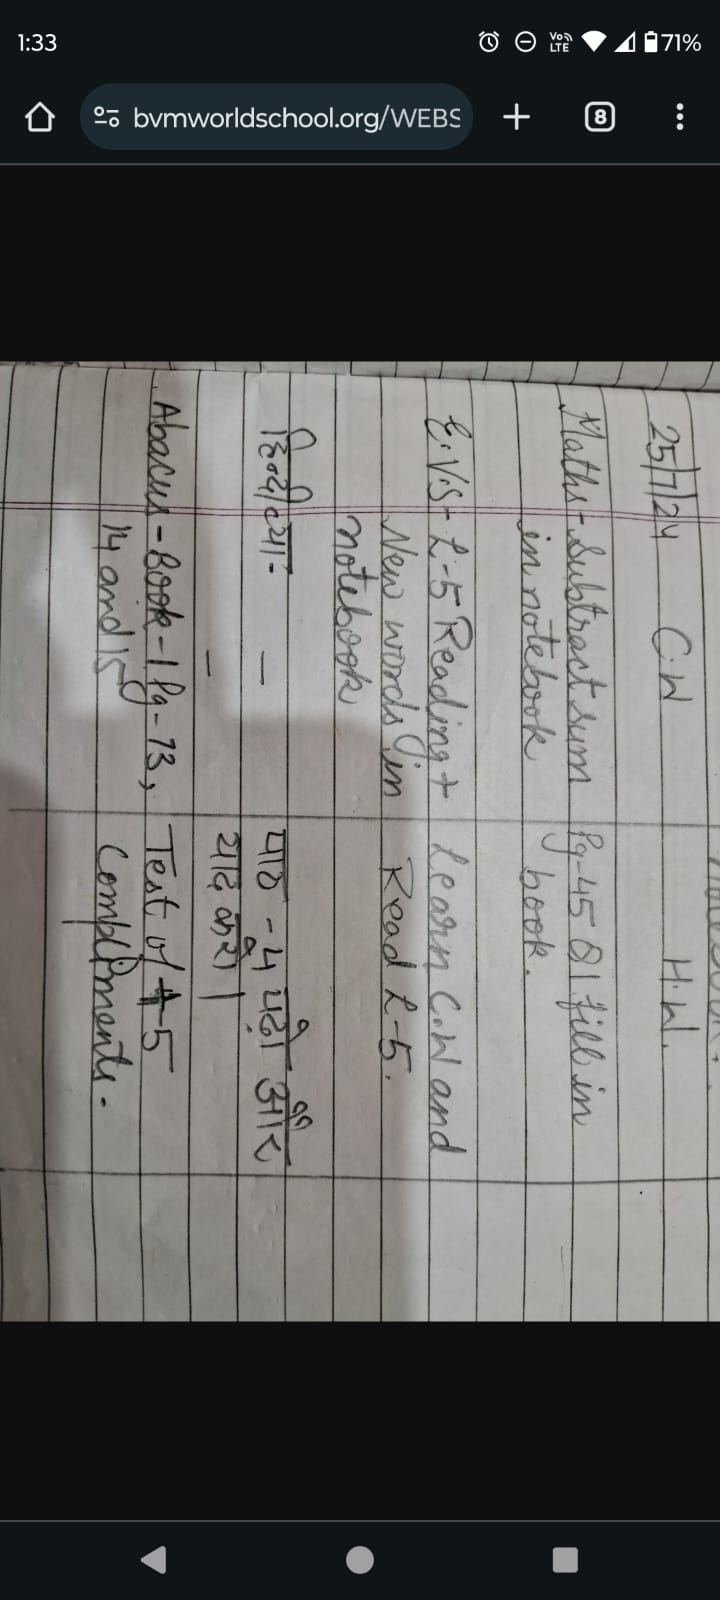 1:33
VoD LTE 71%
bvmworldschool.org/WEBS
8
25/7/24 C.W H.W.
Maths - Subtract sum Pg-45 Q1 fill in
in notebook book.
E.V.S - L-5 Reading + Learn C.W and
New words in Read L-5.
notebook
हिन्दी - पाठ - 5 पढ़ो और
- याद करो।
Abacus - Book - 1 Pg - 13, Test of +5
14 and 15 Compliments.